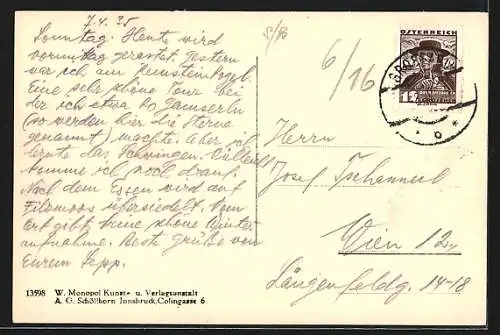 7.4.35
Sonntag. Heute wird
vormittag gerastet. Gestern
war ich am
Eine sehr schöne Tour bei
der ich etwa 80 Gamserln
(so werden hier die Sterne
genannt) machte. Aber ich
lernte das Schwingen. Vielleicht
komme ich noch drauf.
Nach dem Essen wird auf
Filzmoos übersiedelt. Vom
Ort gibt keine schöne Winter
aufnahme. Beste Grüße von
Eurem Sepp.
13598 W. Monopol Kunst- u. Verlagsanstalt
A. G. Schöllhorn Innsbruck, Colingasse 6
6/16
ÖSTERREICH
12 GROSCHEN
b
Herrn
Josef
Wien 12,
Längenfeldg. 14-18